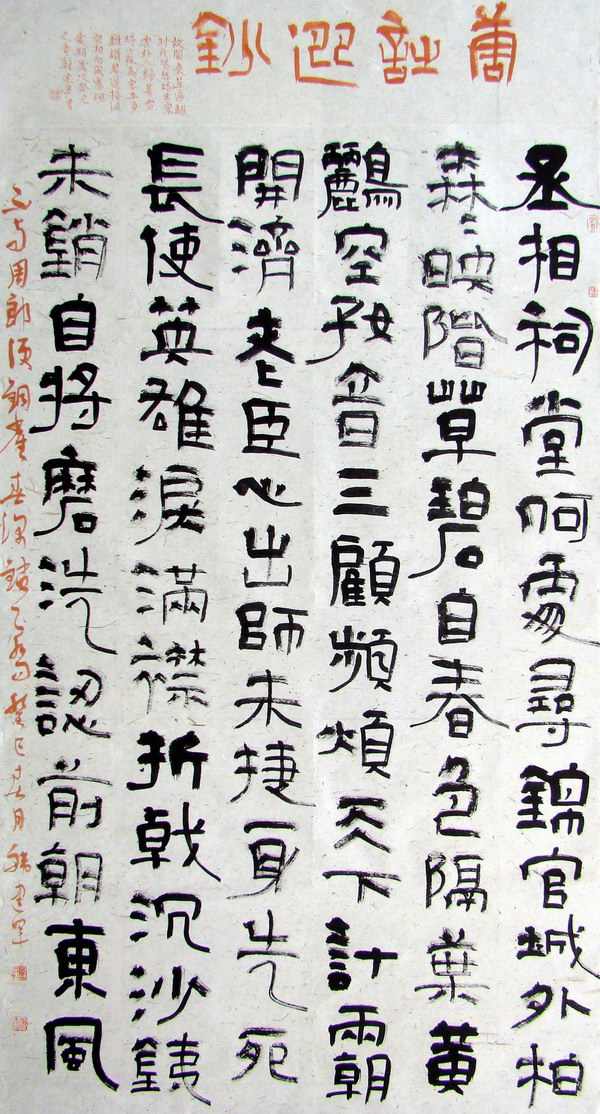 舊鈔
丞相祠堂何處尋錦官城外柏
森〻映階草碧自春色隔葉黃
鸝空好音三顧頻煩天下計兩朝
開濟老臣心出師未捷身先死
長使英雄淚滿襟折戟沉沙鐵
未銷自將磨洗認前朝東風
不与周郎便銅雀春深鎖二喬癸巳春月